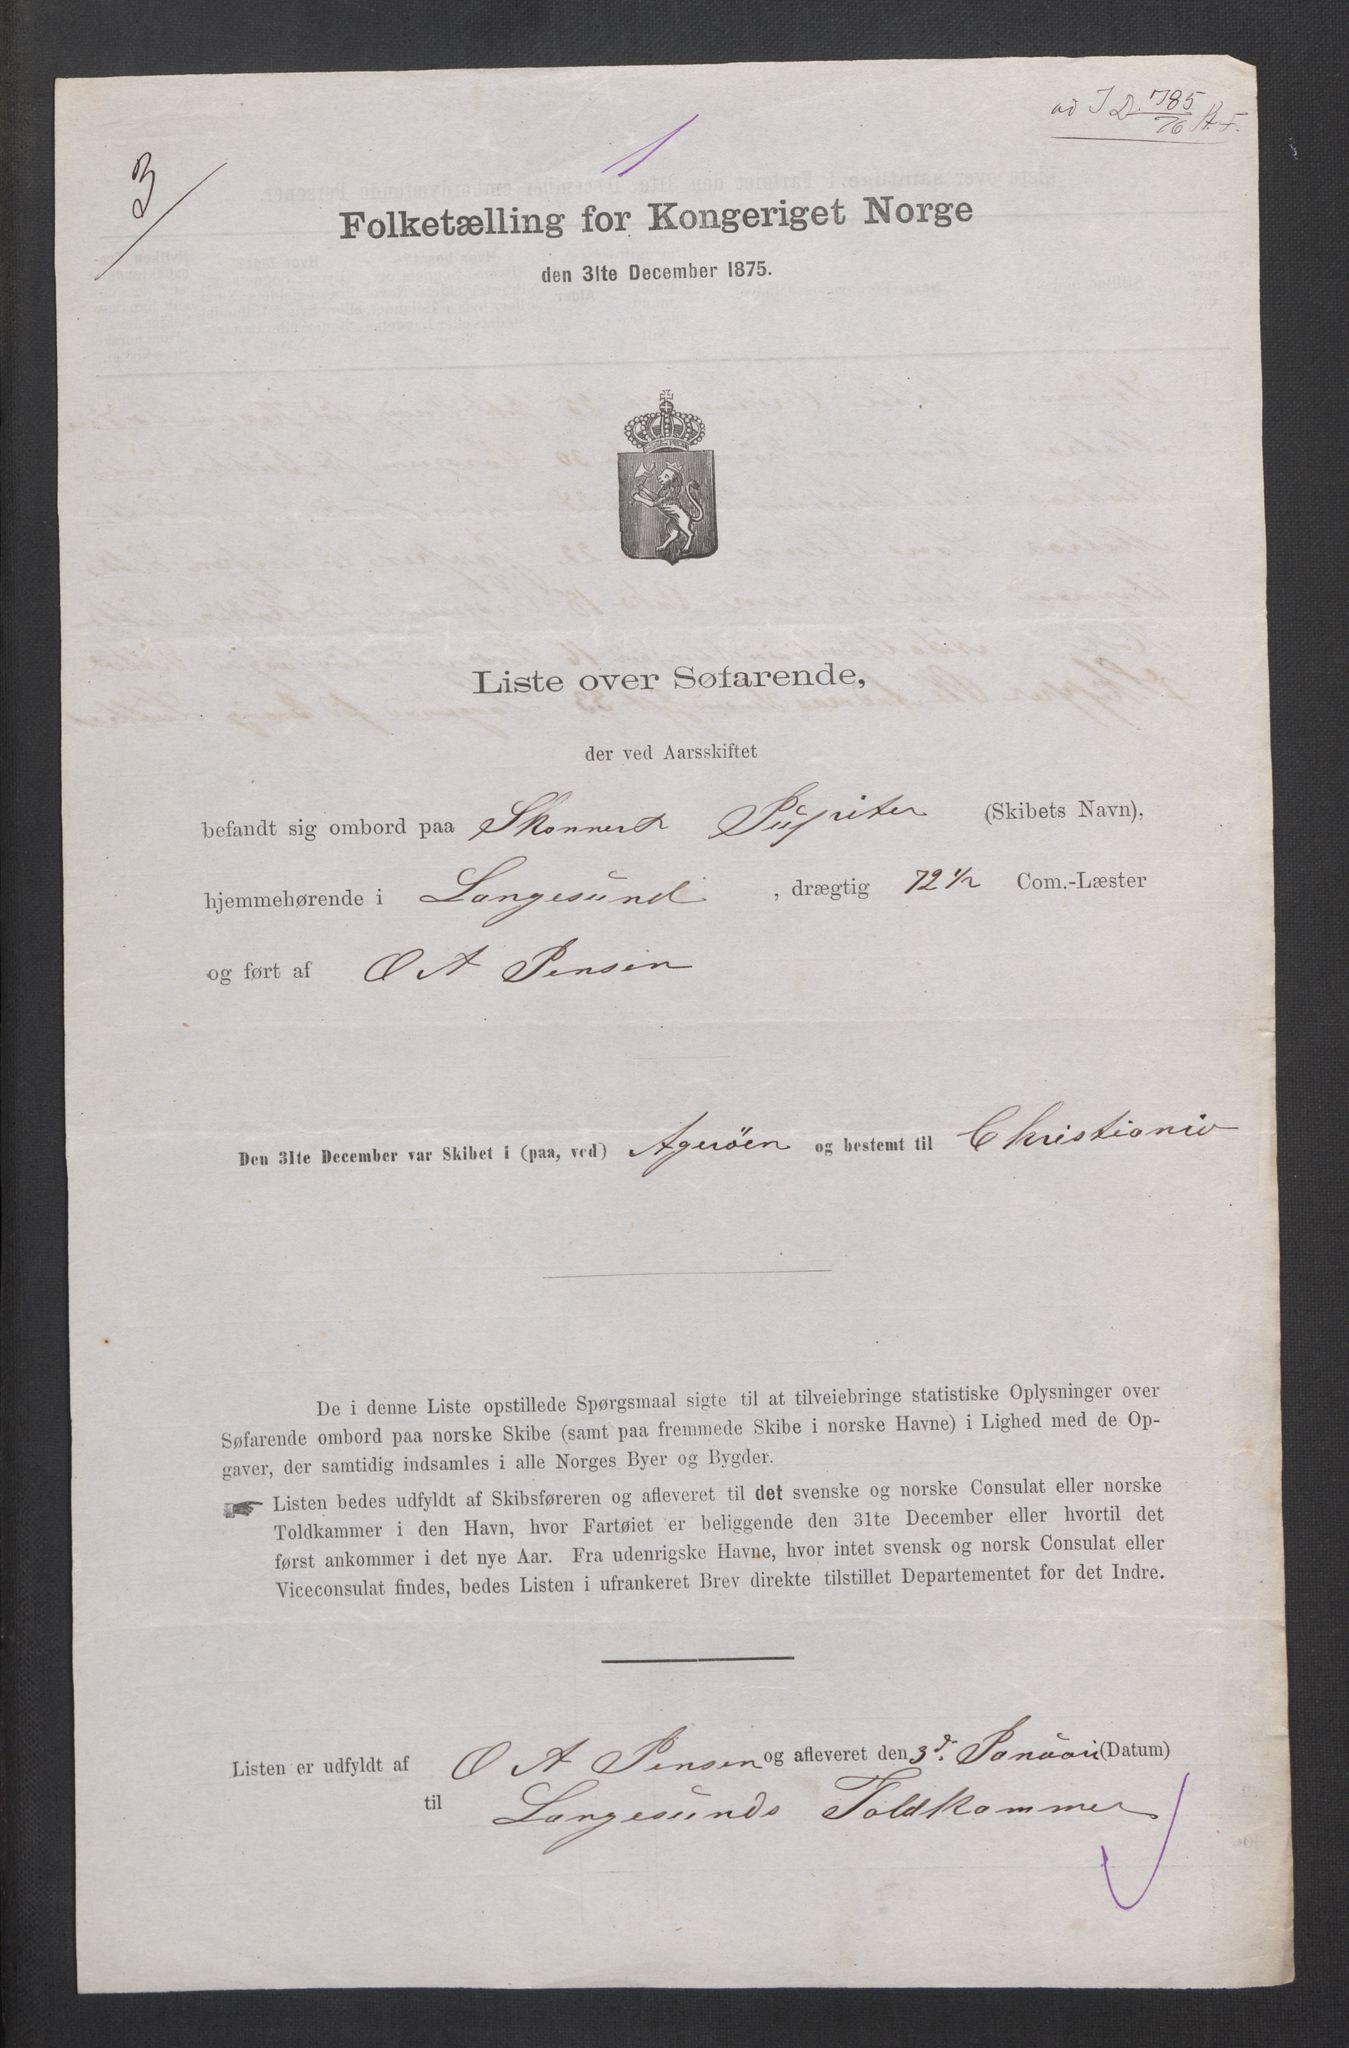 ad I D. 785/76 A. F.
1
3
Folketælling for Kongeriget Norge
den 31te December 1875.
Liste over Søfarende,
der ved Aarsskiftet
befandt sig ombord paa Skonnert Jüpiter (Skibets Navn),
hjemmehørende i Langesund , drægtig 72 1/2 Com.-Læster
og ført af O A Jensen
Den 31te December var Skibet i (paa, ved) Ageröen og bestemt til Christiania
De i denne Liste opstillede Spørgsmaal sigte til at tilveiebringe statistiske Oplysninger over
Søfarende ombord paa norske Skibe (samt paa fremmede Skibe i norske Havne) i Lighed med de Op-
gaver, der samtidig indsamles i alle Norges Byer og Bygder.
☛ Listen bedes udfyldt af Skibsføreren og afleveret til det svenske og norske Consulat eller norske
Toldkammer i den Havn, hvor Fartøiet er beliggende den 31te December eller hvortil det
først ankommer i det nye Aar. Fra udenrigske Havne, hvor intet svensk og norsk Consulat eller
Viceconsulat findes, bedes Listen i ufrankeret Brev direkte tilstillet Departementet for det Indre.
Listen er udfyldt af O A Jensen og afleveret den 3d. Januari (Datum)
til Langesunds Toldkammer